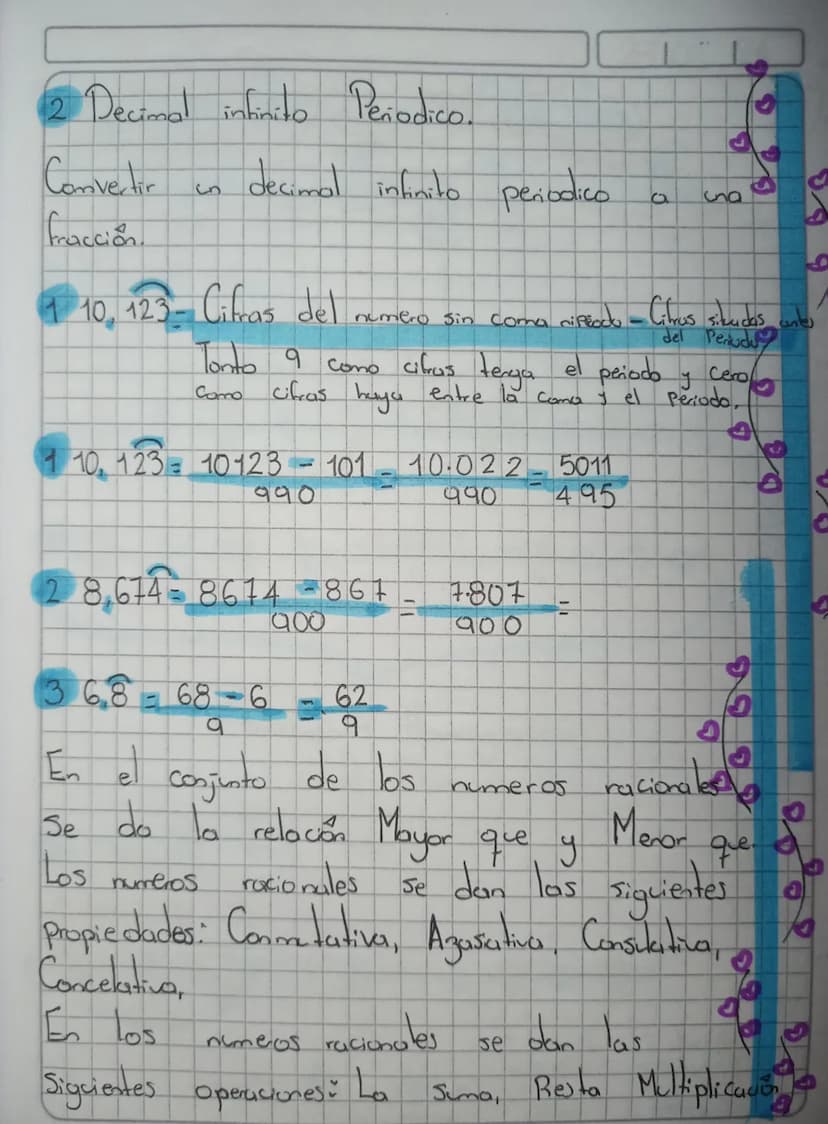 2 Decimal infinito Periodico.
Convertir un decimal infinito periodico a una
fracción.
1 10,123 = Cifras del numero sin coma - Cifras situadas antes
del Periodo
Tanto 9 como cifras tenga el periodo y cero
como cifras haya entre la coma y el Periodo.
1 10,123 = 10123 - 101 / 990 = 10.022 / 990 = 5011 / 495
2 8,674 = 8674 - 867 / 900 = 7.807 / 900 =
3 6,8 = 68 - 6 / 9 = 62 / 9
En el conjunto de los numeros racionales
se da la relación Mayor que y Menor que.
Los numeros racionales se dan las siguientes
propiedades: Conmutativa,
Concelativa,
En los numeros racionales se dan las
Siguientes operaciones: La Suma, Resta Multiplicación